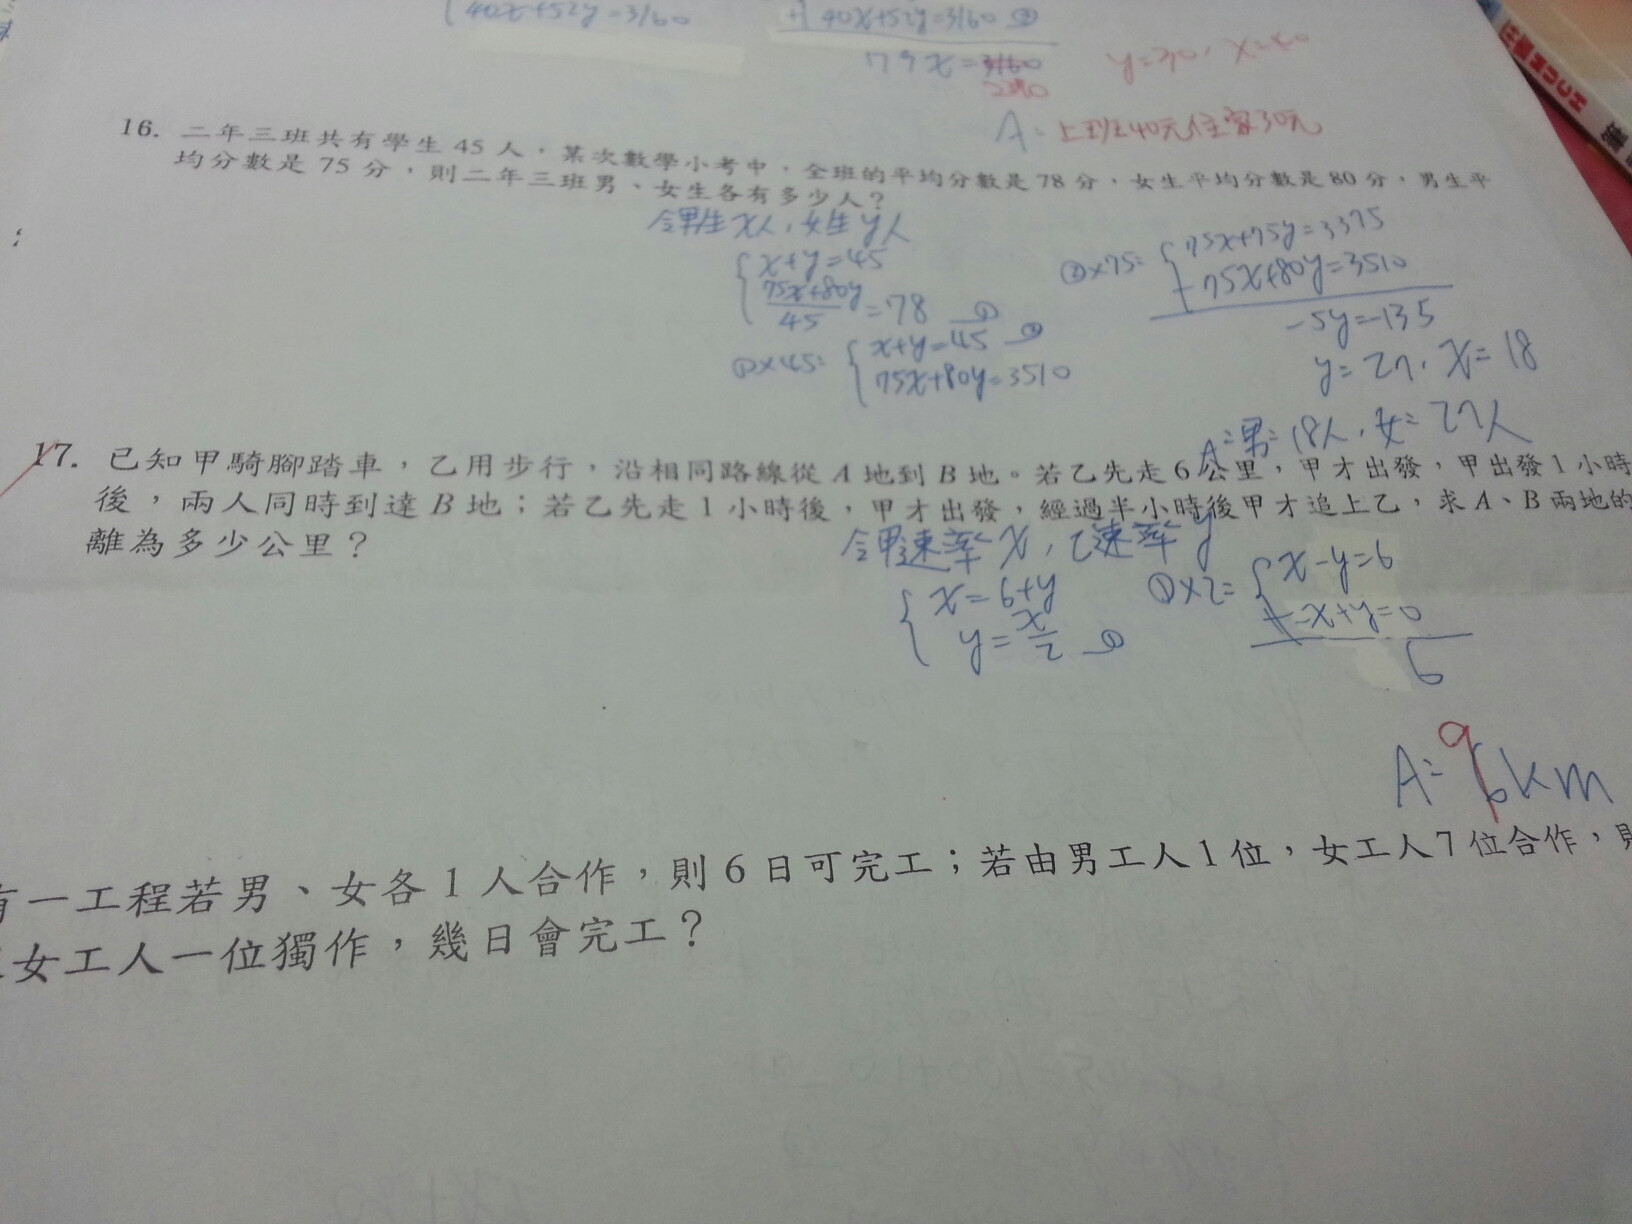 40x+52y=3160
+) 40x+52y=3160 ②
79x=3160
2370
y=30, x=40
A: 上班40元住家30元
16. 二年三班共有學生 45 人,某次數學小考中,全班的平均分數是 78 分,女生平均分數是 80 分,男生平
均分數是 75 分,則二年三班男、女生各有多少人?
令男生x人,女生y人
x+y=45
75x+80y/45=78 ①
①×45: x+y=45 ②
75x+80y=3510
②×75: 75x+75y=3375
75x+80y=3510
-5y=-135
y=27, x=18
A:男:18人,女:27人
17. 已知甲騎腳踏車,乙用步行,沿相同路線從 A 地到 B 地。若乙先走 6 公里,甲才出發,甲出發 1 小時
後,兩人同時到達 B 地;若乙先走 1 小時後,甲才出發,經過半小時後甲才追上乙,求 A、B 兩地的
離為多少公里?
令甲速率x,乙速率y
x=6+y
y=x/2 ①
①×2: x-y=6
-x+y=0
6
A: 9 6km
有一工程若男、女各 1 人合作,則 6 日可完工;若由男工人 1 位,女工人 7 位合作,則
女工人一位獨作,幾日會完工?